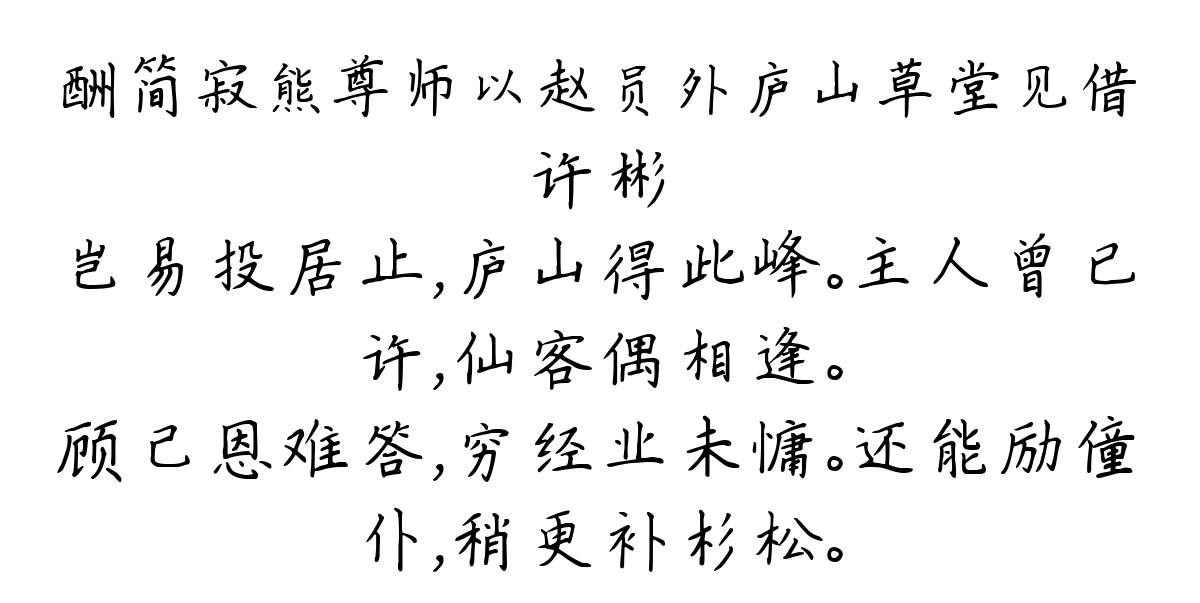 酬简寂熊尊师以赵员外庐山草堂见借
许彬
岂易投居止,庐山得此峰。主人曾已
许,仙客偶相逢。
顾己恩难答,穷经业未慵。还能励僮
仆,稍更补杉松。